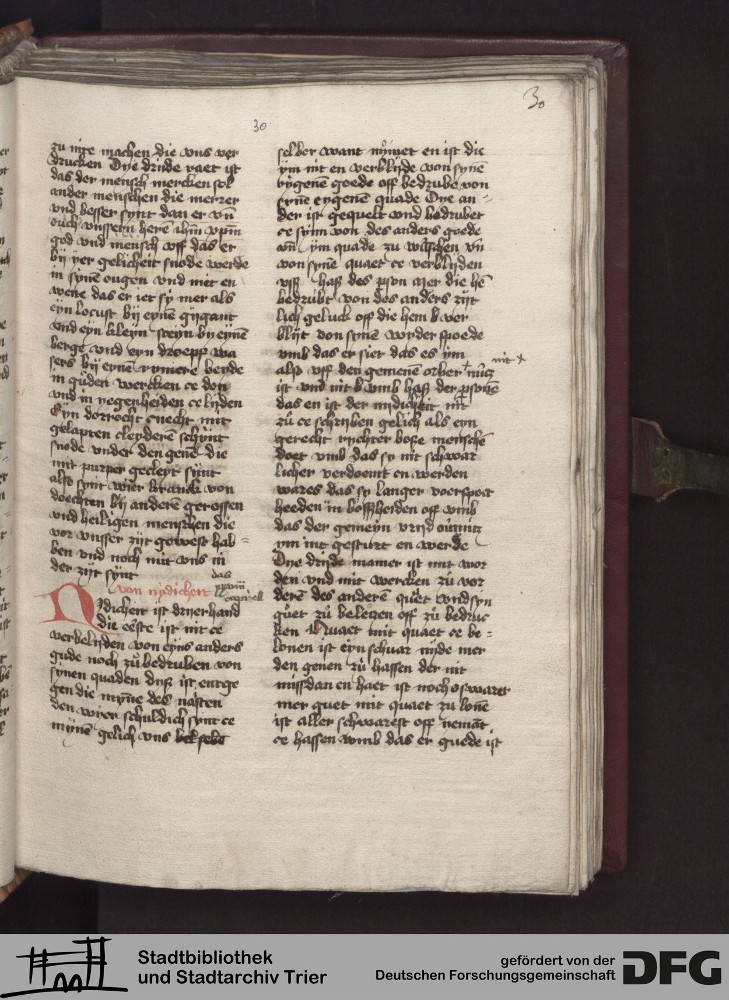 30
30
zu nige machen die vns ver
drucken Dye dride raet ist
das der mensch mercken sol
ander menschen die merrer
vnd besser synt dan er vn̄
ouch vnssern herē ihm̄ xpm̄
god vnd mensch vff das er
bij yer gelicheit snode werde
in synē ougen vnd niet en
wene das er iet sy mer als
eyn locust bij eynē gygant
vnd eyn kleyn steyn by eynē
berge vnd eyn droepp wa
sers bij eynē ryuiere beyde
in guden wercken ce don
vnd in yegenheiden ce lyden
Eyn dorrocht cnecht mit
gelapten cleyderē schynt
snode vnder den genē die
mit purper gecleyt synt
also synt wier kranck von
doechten bij anderē gerossen
vnd heiligen menschen die
vor vnsser zijt gewest hab-
ben vnd noch mit vns in
der zijt synt
von nydicheit das
capittell
Nidicheit ist drijerhand
die eēste ist nit ce
verbelyden von eyns anders
gude noch zu bedruben von
synen quaden dyß ist entge
gen die myne des nasten
den wier schuldich synt ce
mynē gelich vns
selber want nymet en ist die
ym nit en verblijde von synē
eygenē goede off bedrube von
synē eygenē quade Dye an-
der ist gequelt vnd bedrubet
ce synn von des anders goede
vn̄ ym quade zu wuschen vn̄
von synē quaet ce verblyden
vß haß des pson mer die hē
bedrubt von des anders zijt
lich geluck off die hem b ver
blijt von synē wyder spoede
vmb das er siet das es ym
also vff den gemenē orber nucz
nit
ist vnd nit vmb haß der psonē
das en ist der nydicheit nit
zu ce schriben gelich als eyn
gerecht richter boße menschē
doet vmb das sy nit schwar
licher verdoemt en werden
wares das sy langer voerspoet
heeden in boßheiden off vmb
das der gemeyn
ym nit gesturt en werde
Dye dryde manier ist mit wor
den vnd mit wercken zu vor
derē des anderē quet vnd syn
guet zu beletzen off zu bedruc
ken Quaet mit quaet ce be-
lonen ist eyn schwar nyde mer
den genen zu hassen der nit
missdan en haet ist noch oswarer
mer guet mit quaet zu lonē
ist aller schwarest off nemāt
ce hassen vmb das er guede ist
Stadtbibliothek
und Stadtarchiv Trier
gefördert von der
Deutschen Forschungsgemeinschaft
DFG